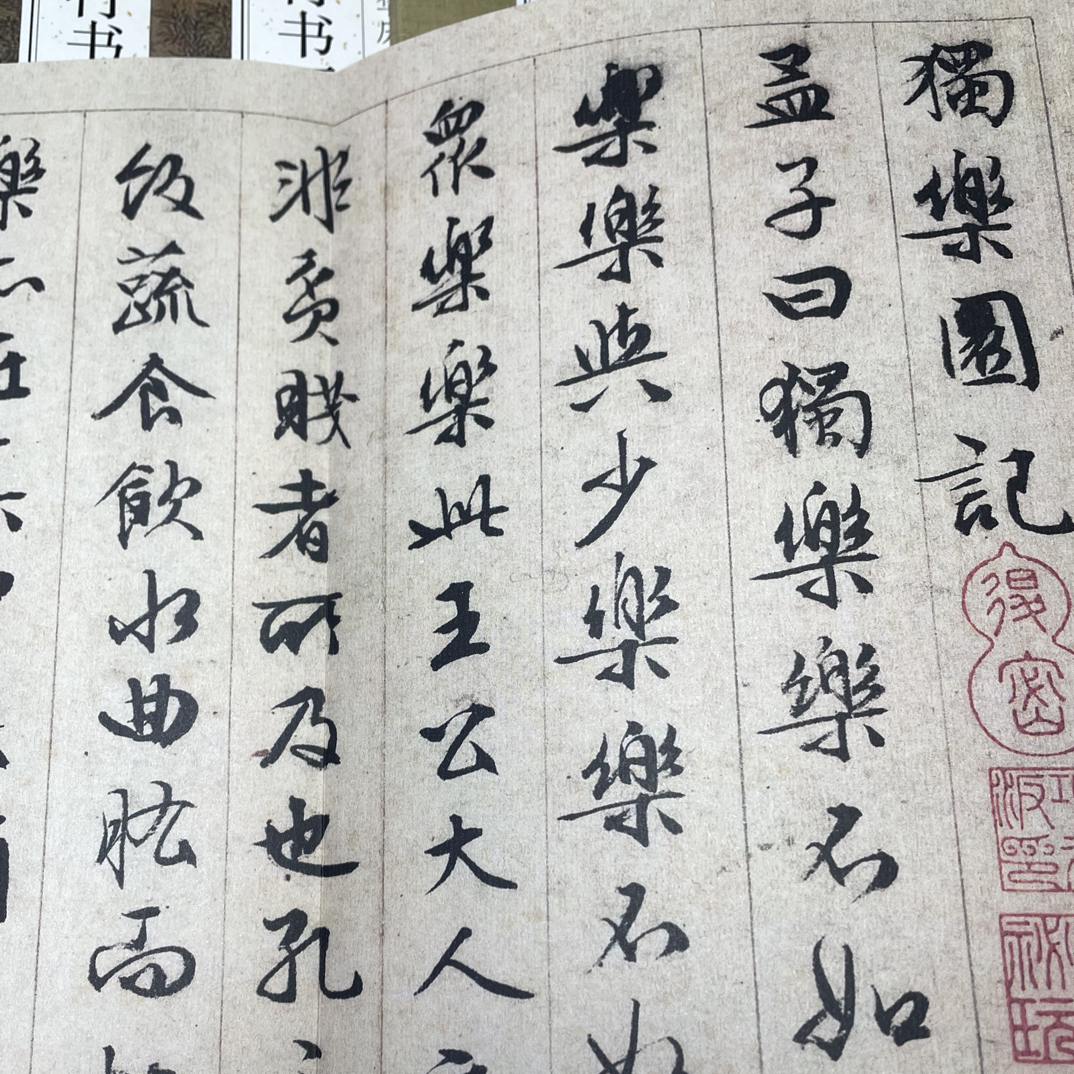 獨樂園記
孟子曰獨樂樂不如
樂樂與少樂樂不如
衆樂樂此王公大人
非貧賤者所及也孔
飯蔬食飲水曲肱而
樂
书
书